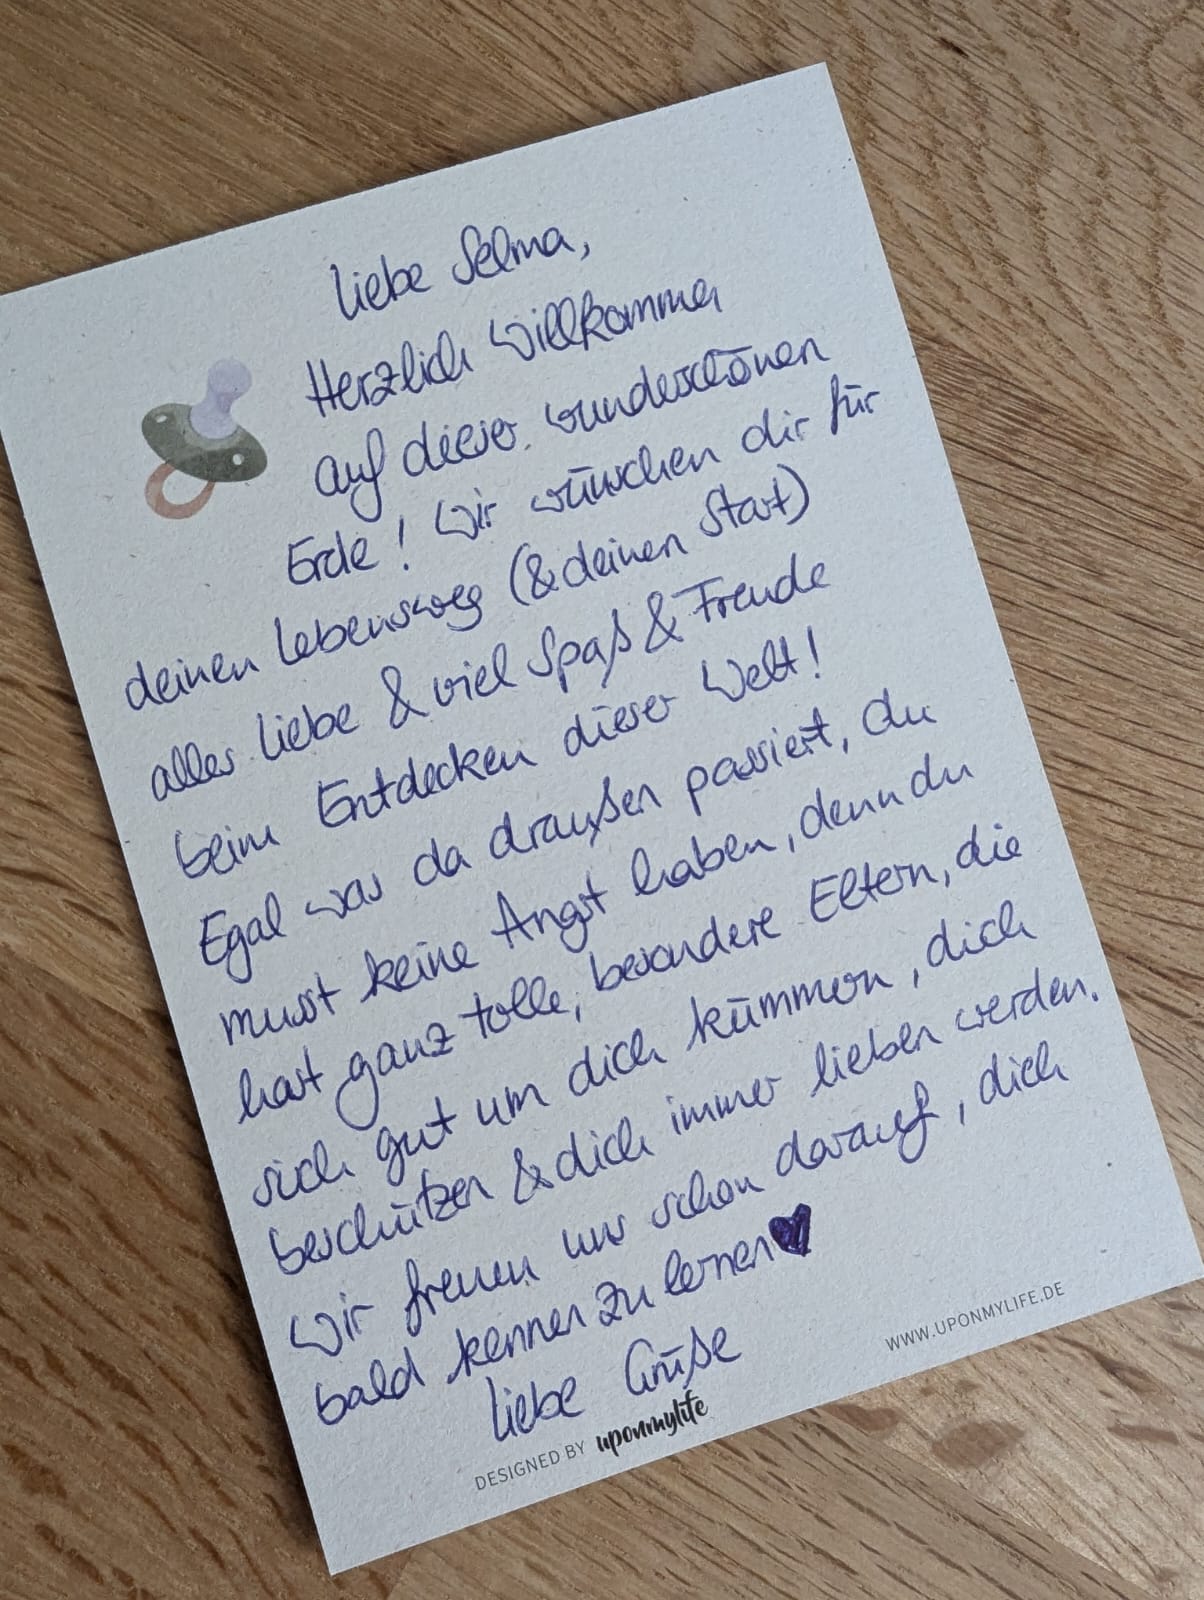 Liebe Selma,
Herzlich Willkommen
auf dieser wunderschönen
Erde! Wir wünschen dir für
deinen Lebensweg (& deinen Start)
alles Liebe & viel Spaß & Freude
beim Entdecken dieser Welt!
Egal was da draußen passiert, du
musst keine Angst haben, denn du
hast ganz tolle, besondere Eltern, die
sich gut um dich kümmern, dich
beschützen & dich immer lieben werden.
Wir freuen uns schon darauf, dich
bald kennen zu lernen♥
Liebe Grüße
DESIGNED BY uponmylife
WWW.UPONMYLIFE.DE